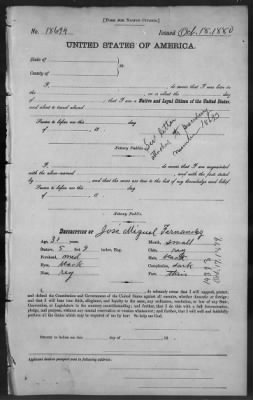 [FORM FOR NATIVE CITIZEN.]
No. 18694 Issued Oct. 18. 1880
UNITED STATES OF AMERICA.
State of
County of
ss.
I, do swear that I was born in the
, on or about the day
of , that I am a Native and Loyal Citizen of the United States,
and about to travel abroad
Sworn to before me this day
of , 18
Notary Public.
See letter
attached to
number 18693
I, do swear that I am acquainted
with the above-named , and with the facts stated
by , and that the same are true to the best of my knowledge and belief.
Sworn to before me this day
of , 18
Notary Public.
DESCRIPTION OF José Miguel Fernandez
Age, 31 years Mouth, small
Stature, 5 feet 9 inches, Eng. Chin,
Forehead, med Hair, black
Eyes, black Complexion, dark
Nose, reg Face, thin
I, do solemnly swear that I will support, protect,
and defend the Constitution and Government of the United States against all enemies, whether domestic or foreign;
and that I will bear true faith, allegiance, and loyalty to the same, any ordinance, resolution, or law of any State,
Convention, or Legislature to the contrary notwithstanding; and further, that I do this with a full determination,
pledge, and purpose, without any mental reservation or evasion whatsoever; and further, that I will well and faithfully
perform all the duties which may be required of me by law: So help me God.
Sworn to before me this day
of , 18
Notary Public.
Applicant desires passport to be sent to